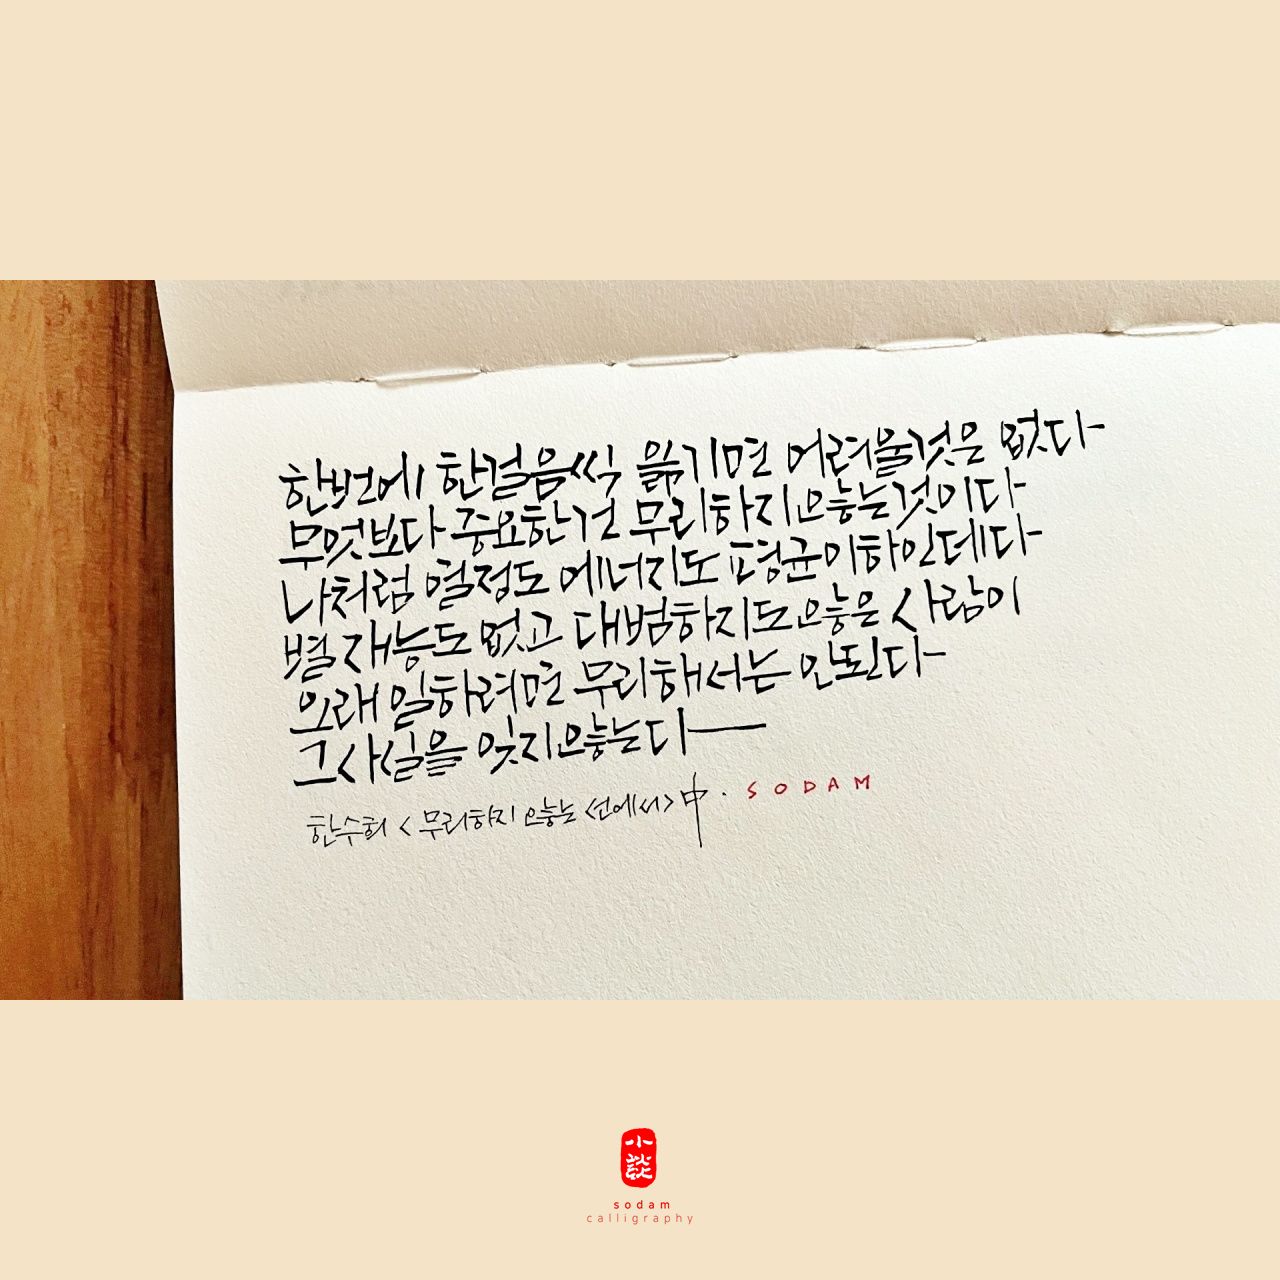 한번에 한걸음씩 옮기면 어려울것은 없다
무엇보다 중요한건 무리하지않는것이다
나처럼 열정도 에너지도 평균이하인데다
별 재능도 없고 대범하지도않은 사람이
오래 일하려면 무리해서는 안된다
그사실을 잊지않는다
한수희 <무리하지 않는 선에서> 中 . SODAM
小談
sodam
calligraphy